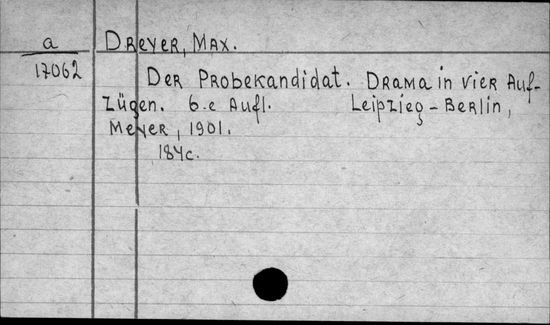 a
17062
Dreyer, Max.
Der Probekandidat. Drama in vier Auf-
zügen. 6.e Aufl. Leipzieg-Berlin,
Meyer, 1901.
184c.